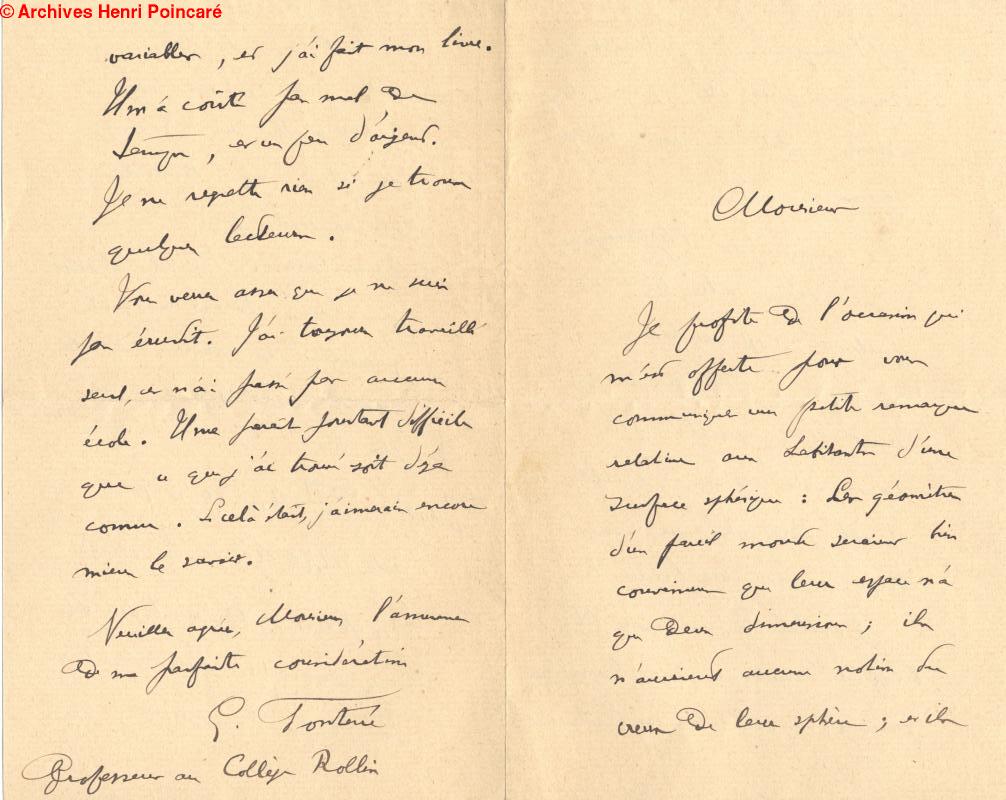 © Archives Henri Poincaré
variables, et j'ai fait mon livre.
Il m'a coûté pas mal de
temps, et un peu d'argent.
Je ne regrette rien si je trouve
quelques lecteurs.
Vous verrez assez que je ne suis
pas érudit. J'ai toujours travaillé
seul, et n'ai passé par aucune
école. Il me paraît pourtant difficile
que ce que j'ai trouvé soit déjà
connu. Si cela était, j'aimerais encore
mieux le savoir.
Veuillez agréer, Monsieur, l'assurance
de ma parfaite considération
G. Fontené
Professeur au Collège Rollin
Monsieur
Je profite de l'occasion qui
m'est offerte pour vous
communiquer une petite remarque
relative aux habitants d'une
surface sphérique : Les géomètres
d'un pareil monde seraient bien
convaincus que leur espace n'a
que deux dimensions ; ils
n'auraient aucune notion du
creux de leur sphère ; et ils